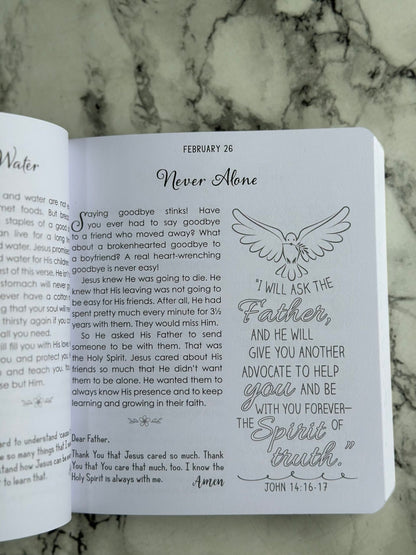 Water
and water are not
met foods. But bread
staples of a good
an live for a long
d water. Jesus promis
d water for His children
st of this verse. He isn't
stomach will never
ever have a cotton
g that your soul will
thirsty again if you
all you need.
ll fill you with His love
u and protect you
and teach you, to
se but Him.
ard to understand 'cause
e so many things that I
stand how Jesus can be
r to learn that.
FEBRUARY 26
Never Alone
Saying goodbye stinks! Have
you ever had to say goodbye
to a friend who moved away? What
about a brokenhearted goodbye to
a boyfriend? A real heart-wrenching
goodbye is never easy!
Jesus knew He was going to die. He
knew that His leaving was not going to
be easy for His friends. After all, He had
spent pretty much every minute for 3½
years with them. They would miss Him.
So He asked His Father to send
someone to be with them. That was
the Holy Spirit. Jesus cared about His
friends so much that He didn't want
them to be alone. He wanted them to
always know His presence and to keep
learning and growing in their faith.
Dear Father,
Thank You that Jesus cared so much. Thank
You that You care that much, too. I know the
Holy Spirit is always with me.
Amen
"I WILL ASK THE
Father,
AND HE WILL
GIVE YOU ANOTHER
ADVOCATE TO HELP
you AND BE
WITH YOU FOREVER—
THE Spirit OF
truth."
JOHN 14:16-17